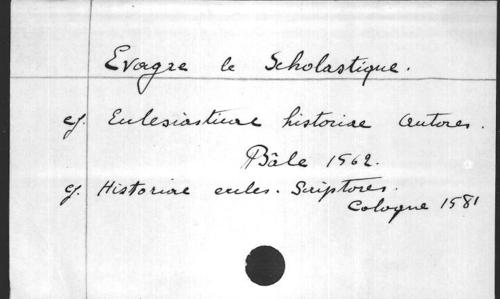 Evagre le Scholastique.
cf. Ecclesiasticae historiae autores.
Bâle 1562.
cf. Historiae eccles. Scriptores.
Cologne 1581